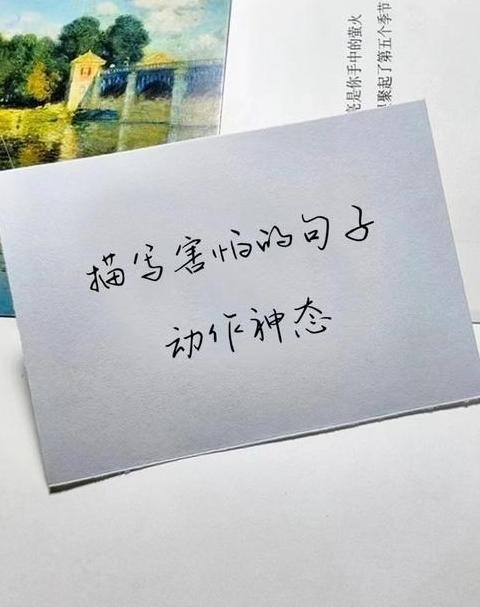 描写害怕的句子
动作神态
是你手中的萤火
聚起了第五个季节